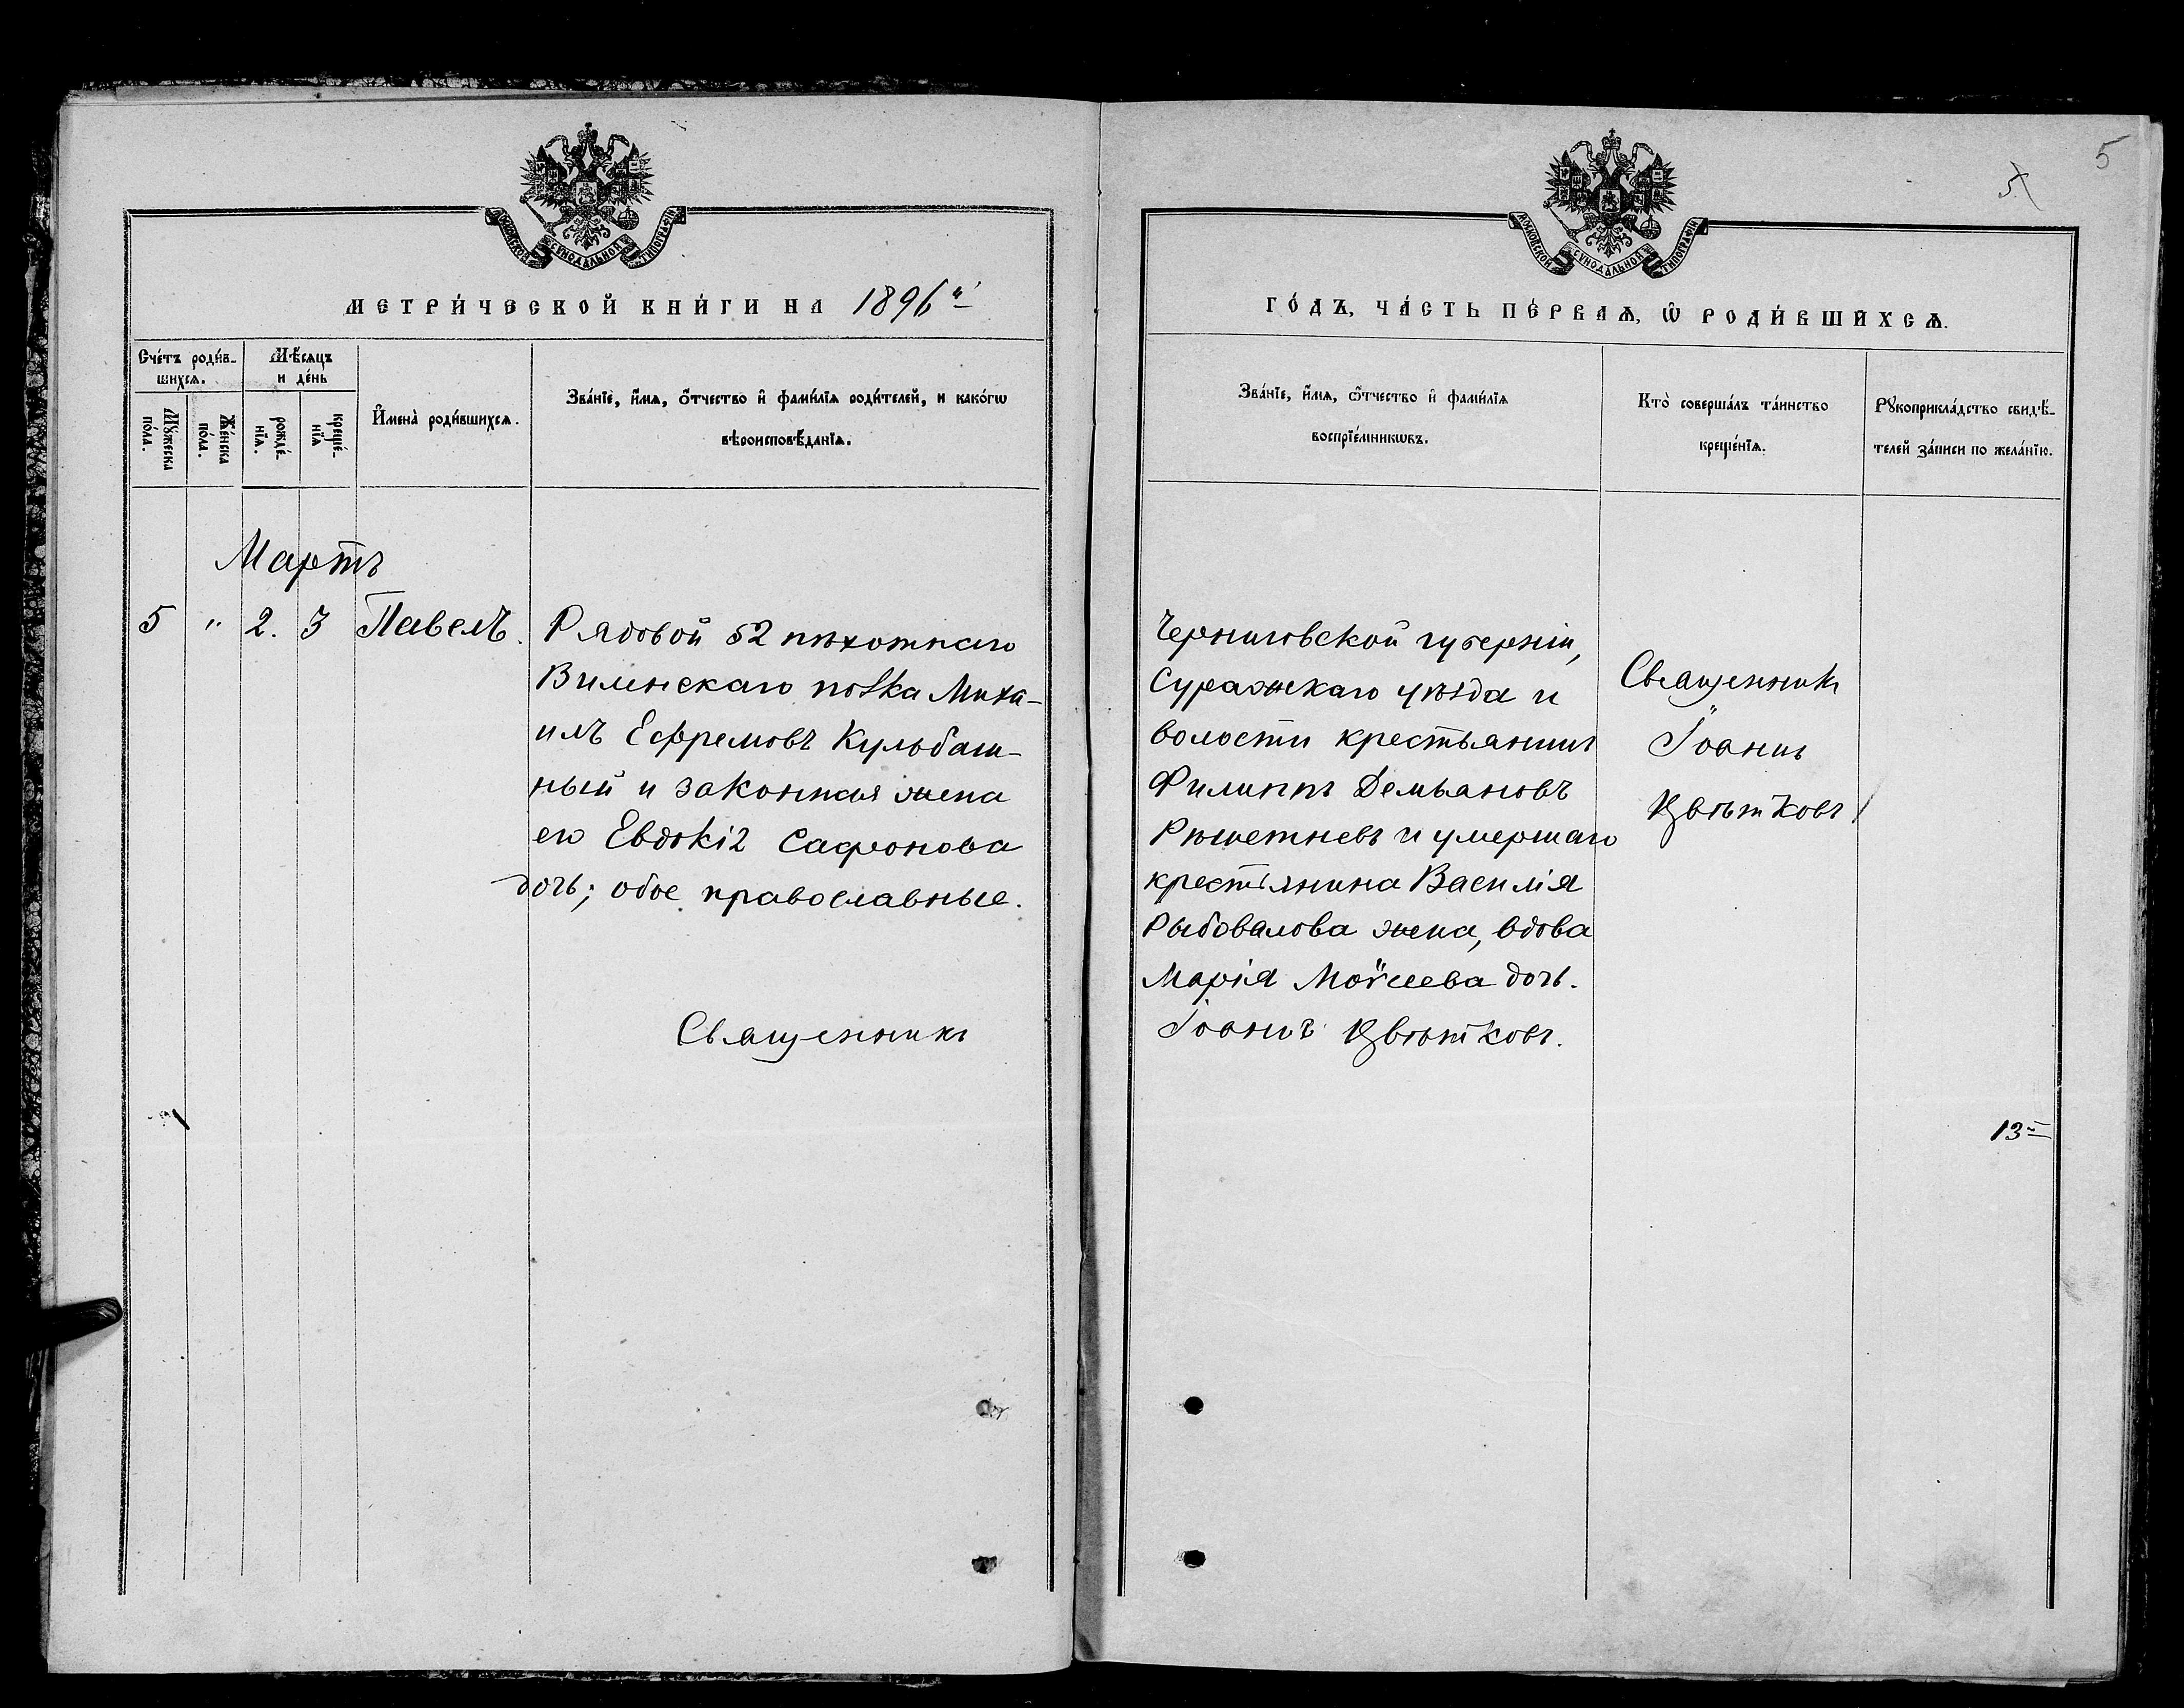 МОСКОВСКОЙ СУНОДАЛЬНОЙ ТИПОГРАФІИ
МЕТРИ́ЧЕСКОЙ КНИ́ГИ НА 1896й
Сче́тъ роди́в-
шихсѧ.
Мѣ́сяцъ
и де́нь
Мꙋ́жеска
по́ла.
Же́нска
по́ла.
рожде́-
нїѧ.
креще́-
нїѧ
И҆мена̀ роди́вшихсѧ.
Зва́нїе, и҆́мѧ, ѻ҆́тчество и҆ фами́лїѧ роди́телей, и како́гѡ
вѣроисповѣ́данїѧ.
Мартъ
5 " 2. 3 Павелъ.
Рядовой 52 пѣхотнаго
Виленскаго полка Миха-
илъ Ефремовъ Кульбаш-
ный и законная жена
его Евдокія Сафонова
дочь; обое православные.
Священникъ
5
5
МОСКОВСКОЙ СУНОДАЛЬНОЙ ТИПОГРАФІИ
ГО́ДЪ, ЧА́СТЬ ПЕ́РВАѦ, Ѽ РОДИ́ВШИХСѦ.
Зва́нїе, и҆́мѧ, ѻ҆́тчество и҆ фами́лїѧ
воспрїе́мникѡвъ.
Кто̀ соверша́лъ та́инство
креще́нїѧ.
Рꙋкоприкла́дство свидѣ́-
телей за́писи по жела́нїю.
Черниговской губерніи,
Суражскаго уѣзда и
волости крестьянинъ
Филиппъ Демьяновъ
Рѣшетневъ и умершаго
крестьянина Василія
Рыбовалова жена, вдова
Марія Моѵсеева дочь.
Іоаннъ Цвѣтковъ.
Священникъ
Іоаннъ
Цвѣтковъ
13